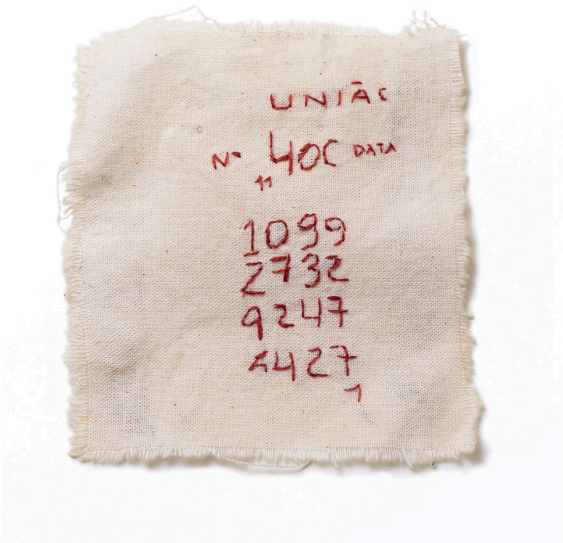 UNIÃC
Nº 40C DATA
11
1099
2732
9247
4427
1